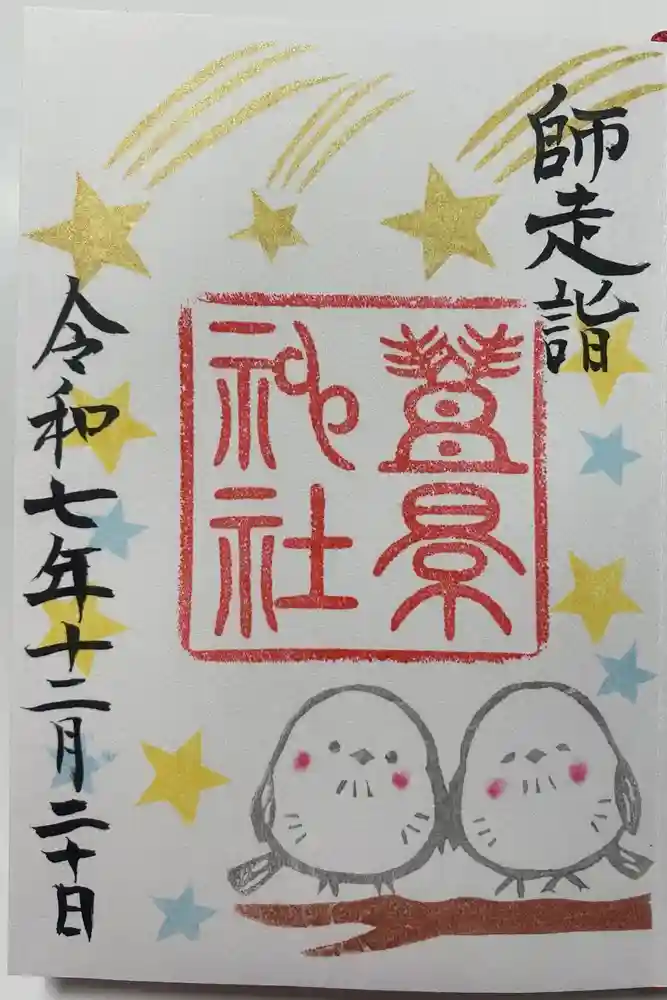 師走詣
豊景
神社
令和七年十二月二十日